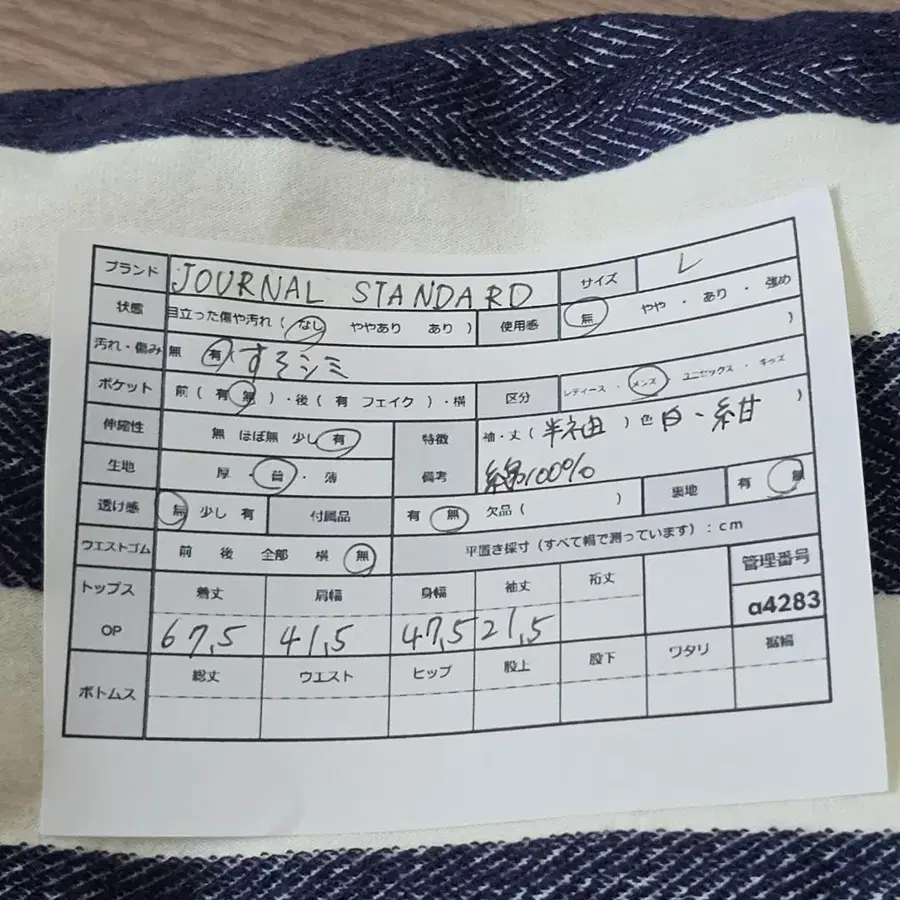 ブランド JOURNAL STANDARD サイズ L
状態 目立った傷や汚れ ( なし ややあり あり ) 使用感 無 やや ・ あり ・ 強め
汚れ・傷み 無 有 ( すそシミ )
ポケット 前 ( 有 無 ) ・後 ( 有 フェイク ) ・横 区分 レディース ・ メンズ ユニセックス ・ キッズ
伸縮性 無 ほぼ無 少し 有 特徴 袖・丈 ( 半袖 ) 色 白・紺 )
生地 厚 ・ 普 ・ 薄 備考 綿100%
透け感 無 少し 有 付属品 有 無 欠品 ( ) 裏地 有 無
ウエストゴム 前 後 全部 横 無 平置き採寸 (すべて幅で測っています) : cm
トップス 着丈 肩幅 身幅 袖丈 裄丈 管理番号
OP 67,5 41,5 47,5 21,5 a4283
ボトムス 総丈 ウエスト ヒップ 股上 股下 ワタリ 裾幅